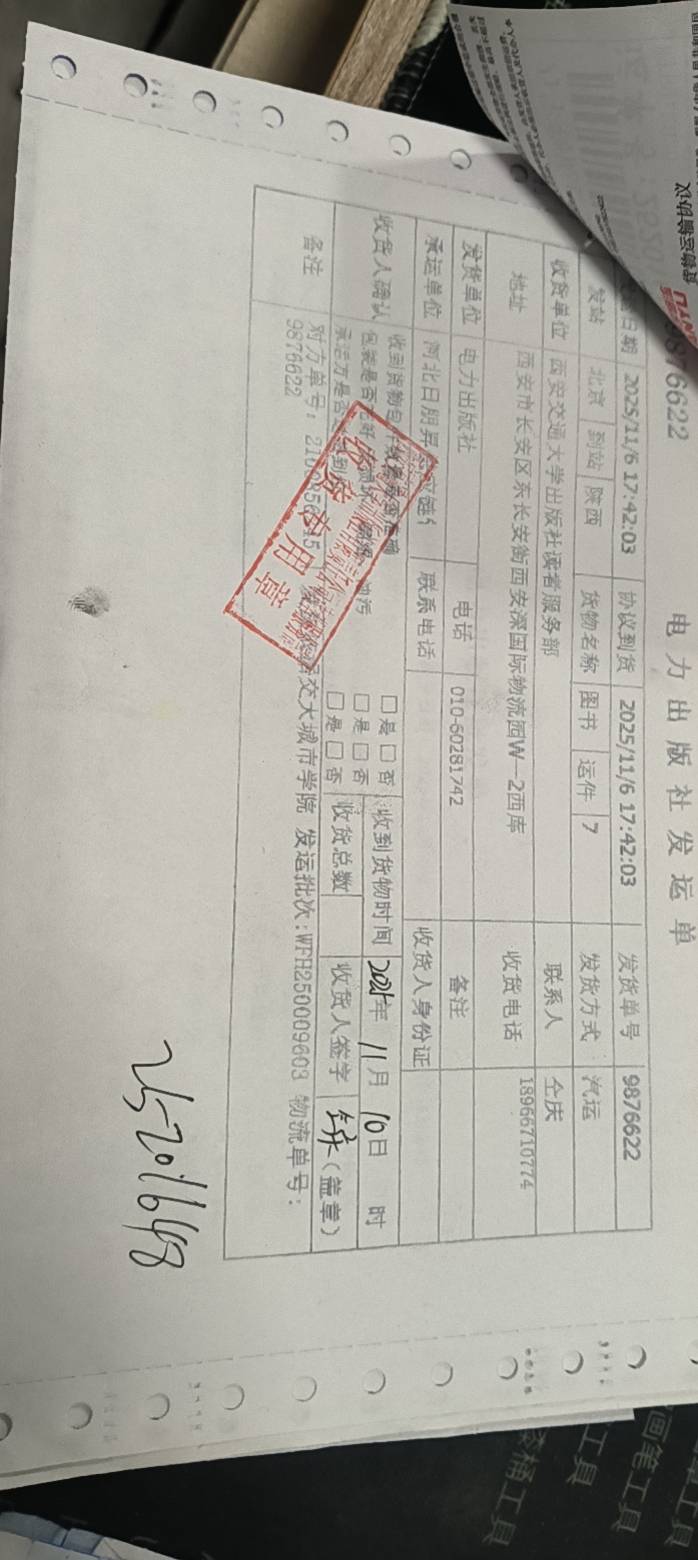 电力出版社发运单
9876622
日期 2025/11/6 17:42:03 协议到货 2025/11/6 17:42:03 发货单号 9876622
发站 北京 到站 陕西 货物名称 图书 运件 7 发货方式 汽运
收货单位 西安交通大学出版社读者服务部 联系人 仝庆
地址 西安市长安区东长安街西安深国际物流园W—2西库 收货电话 18966710774
发货单位 电力出版社 电话 010-60281742 备注
承运单位 河北日朋昇 联系电话 收货人身份证
收货人确认 收到货物包件数 是否准确 □是 □否 收到货物时间 2025年 11月 10日 时
包装是否完好 □是 □否
承运方是否 □是 □否 收货总数 收货人签字 (盖章)
备注 对方单号: 交大城市学院 发运批次:WFH250009603 物流单号:
9876622
发货专用章
25-2011648